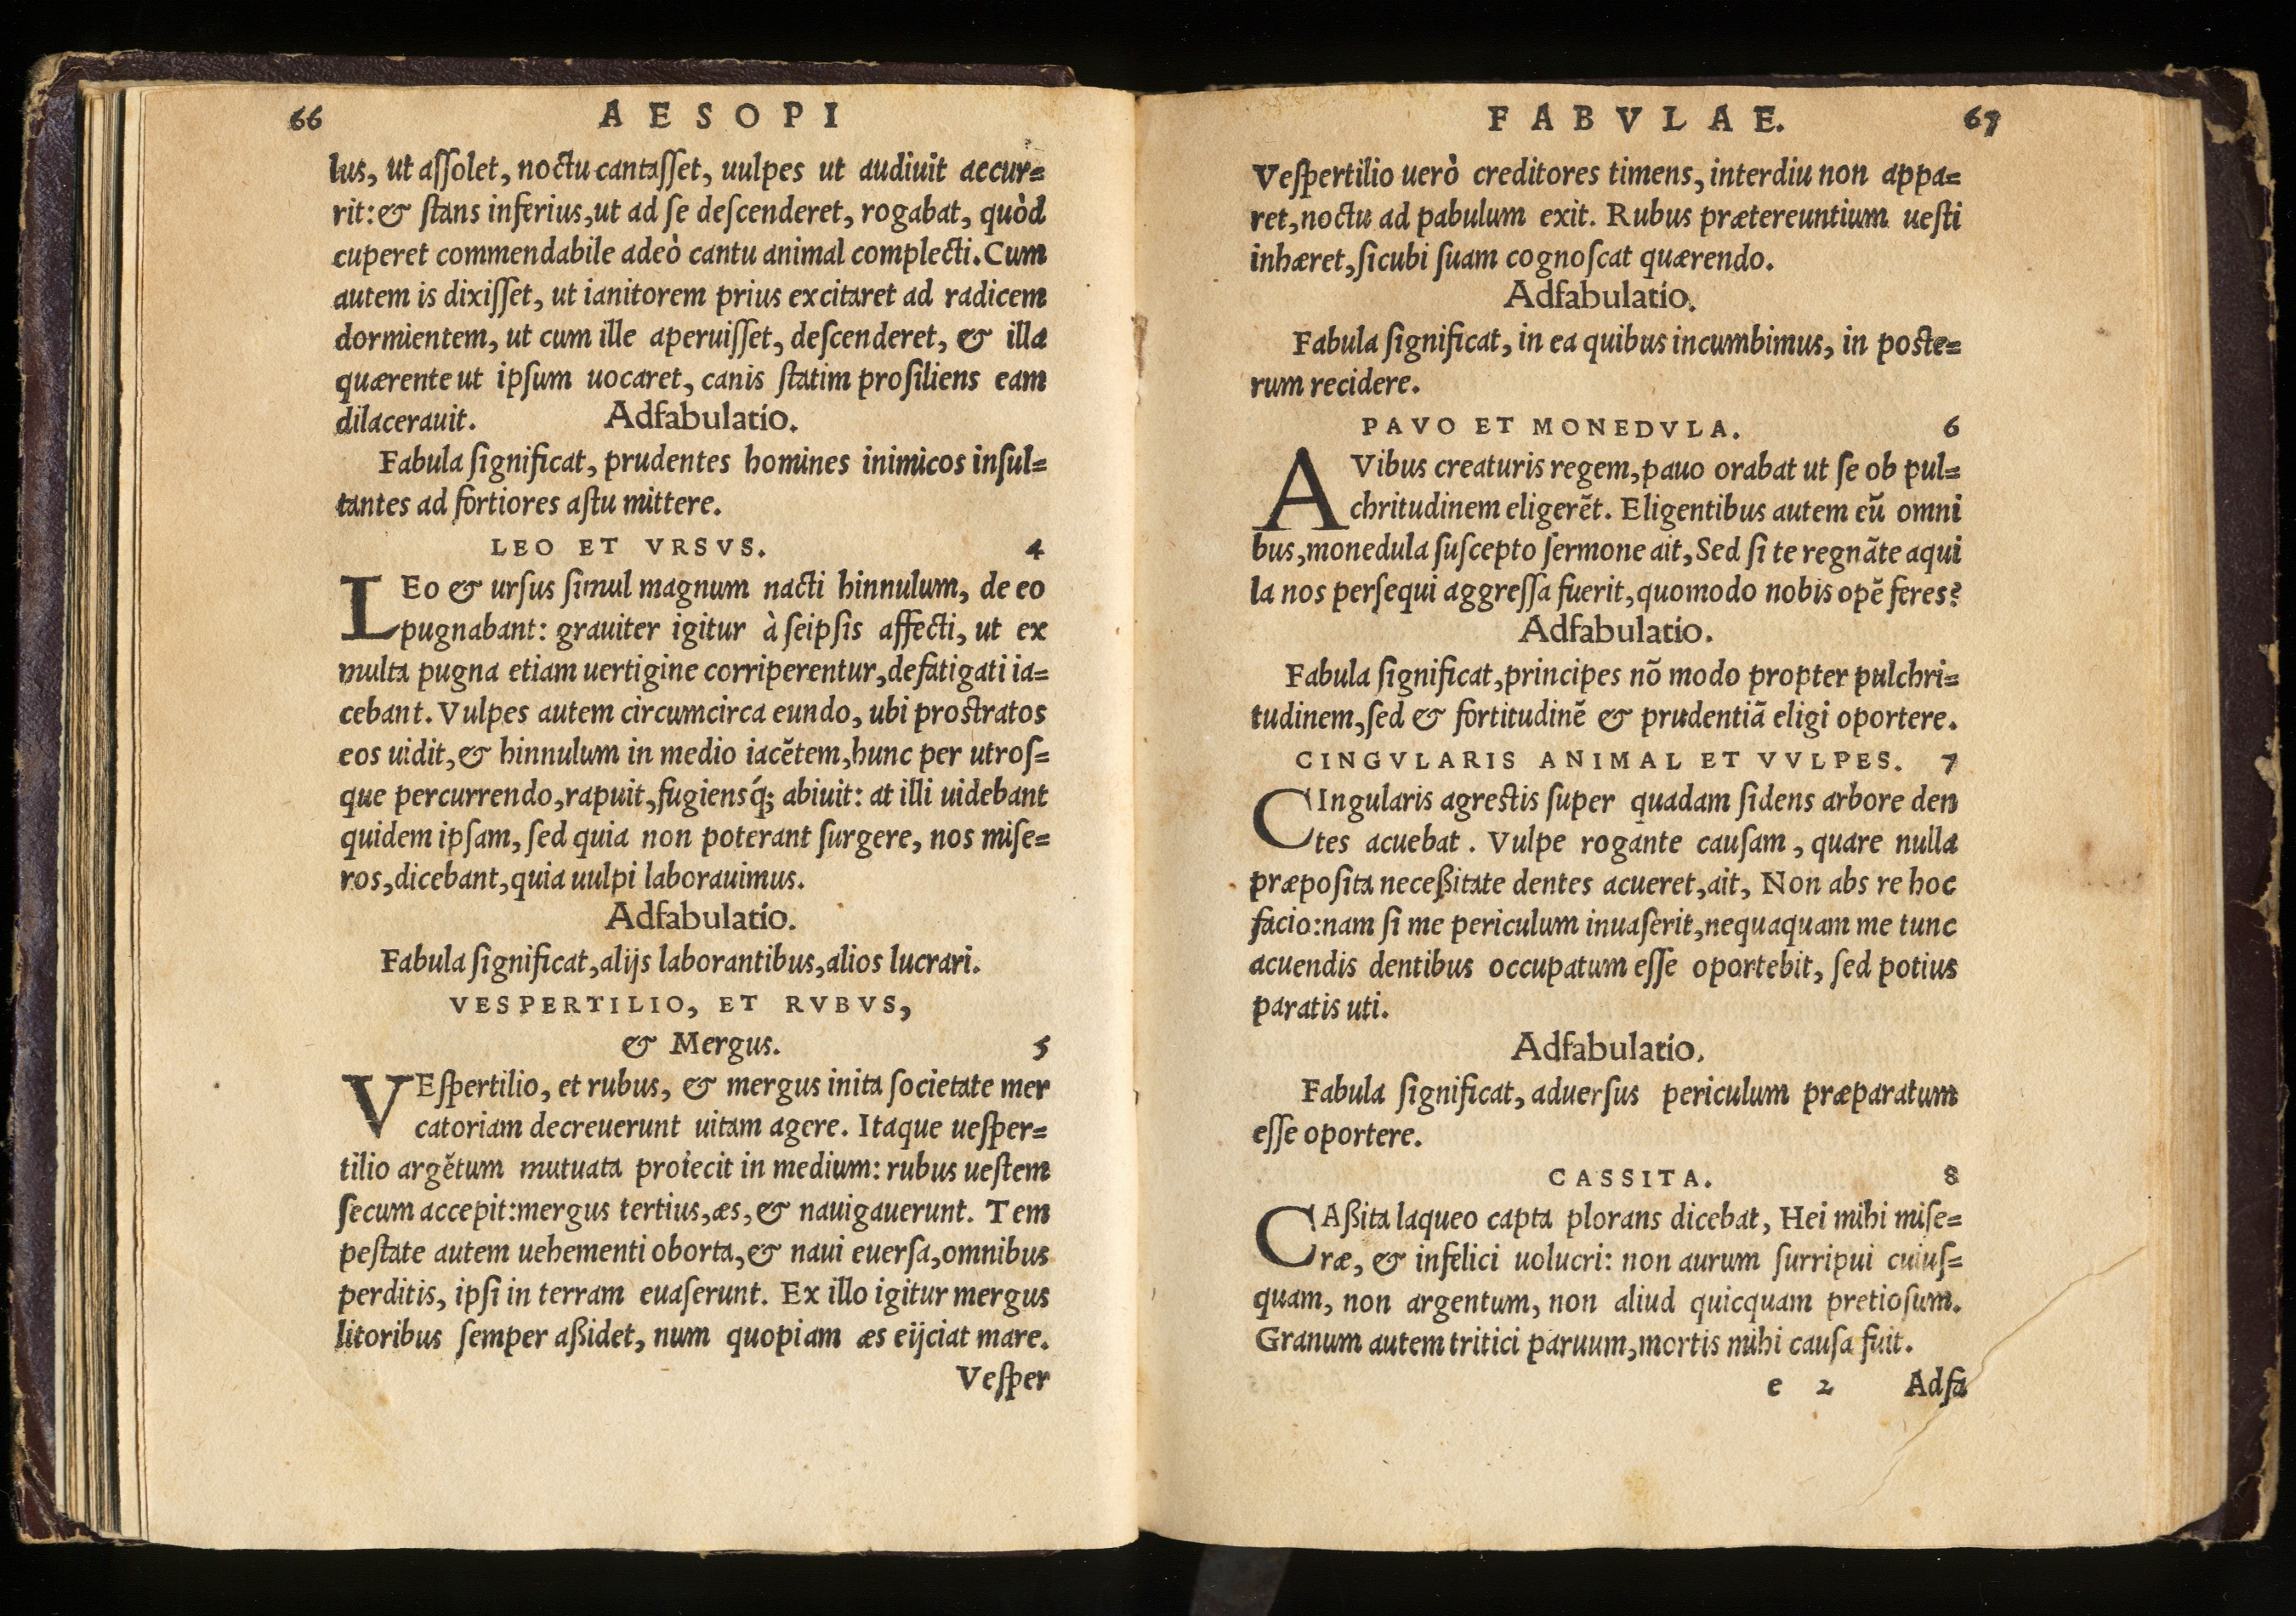 66 AESOPI
lus, ut aſſolet, noctu cantaſſet, uulpes ut audiuit accur=
rit:& ſtans inferius,ut ad ſe deſcenderet, rogabat, quòd
cuperet commendabile adeò cantu animal complecti. Cum
autem is dixiſſet, ut ianitorem prius excitaret ad radicem
dormientem, ut cum ille aperuiſſet, deſcenderet, & illa
quærente ut ipſum uocaret, canis ſtatim proſiliens eam
dilacerauit. Adfabulatio.
Fabula ſignificat, prudentes homines inimicos inſul=
tantes ad fortiores aſtu mittere.
LEO ET VRSVS. 4
LEo & urſus ſimul magnum nacti hinnulum, de eo
pugnabant: grauiter igitur à ſeipſis affecti, ut ex
multa pugna etiam uertigine corriperentur, defatigati ia=
cebant. Vulpes autem circumcirca eundo, ubi proſtratos
eos uidit,& hinnulum in medio iacẽtem,hunc per utroſ=
que percurrendo,rapuit,fugiensq́; abiuit: at illi uidebant
quidem ipſam, ſed quia non poterant ſurgere, nos miſe=
ros,dicebant,quia uulpi laborauimus.
Adfabulatio.
Fabula ſignificat,alijs laborantibus,alios lucrari.
VESPERTILIO, ET RVBVS,
& Mergus. 5
VEſpertilio, et rubus, & mergus inita ſocietate mer
catoriam decreuerunt uitam agere. Itaque ueſper=
tilio argẽtum mutuata proiecit in medium: rubus ueſtem
ſecum accepit:mergus tertius,æs,& nauigauerunt. Tem
peſtate autem uehementi oborta,& naui euerſa,omnibus
perditis, ipſi in terram euaſerunt. Ex illo igitur mergus
litoribus ſemper aßidet, num quopiam æs eijciat mare.
Veſper
FABVLAE. 67
Veſpertilio uerò creditores timens, interdiu non appa=
ret,noctu ad pabulum exit. Rubus prætereuntium ueſti
inhæret,ſicubi ſuam cognoſcat quærendo.
Adfabulatio.
Fabula ſignificat, in ea quibus incumbimus, in poſte=
rum recidere.
PAVO ET MONEDVLA. 6
AVibus creaturis regem,pauo orabat ut ſe ob pul=
chritudinem eligerẽt. Eligentibus autem eũ omni
bus,monedula ſuſcepto ſermone ait, Sed ſi te regnãte aqui
la nos perſequi aggreſſa fuerit,quomodo nobis opẽ feres?
Adfabulatio.
Fabula ſignificat,principes nõ modo propter pulchri=
tudinem,ſed & fortitudinẽ & prudentiã eligi oportere.
CINGVLARIS ANIMAL ET VVLPES. 7
CIngularis agreſtis ſuper quadam ſidens arbore den
tes acuebat. Vulpe rogante cauſam, quare nulla
præpoſita neceßitate dentes acueret,ait, Non abs re hoc
facio:nam ſi me periculum inuaſerit,nequaquam me tunc
acuendis dentibus occupatum eſſe oportebit, ſed potius
paratis uti.
Adfabulatio.
Fabula ſignificat, aduerſus periculum præparatum
eſſe oportere.
CASSITA. 8
CAßita laqueo capta plorans dicebat, Hei mihi miſe=
ræ, & infelici uolucri: non aurum ſurripui cuiuſ=
quam, non argentum, non aliud quicquam pretioſum.
Granum autem tritici paruum,mortis mihi cauſa fuit.
e 2 Adfa